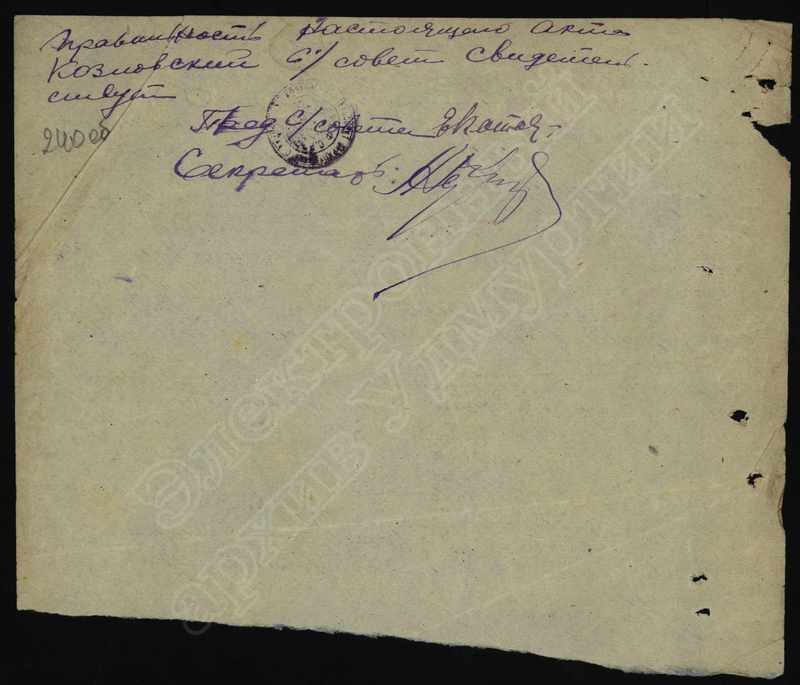 правильность настоящего акта
Козловский С/совет свидетель-
ствует
Пред С/совета
Секретарь:
Электронный
архив Удмуртии